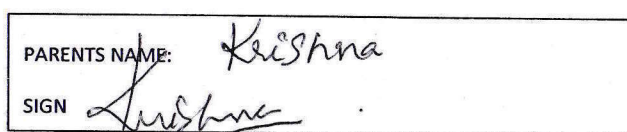 PARENTS NAME: Krishna
SIGN Krishna